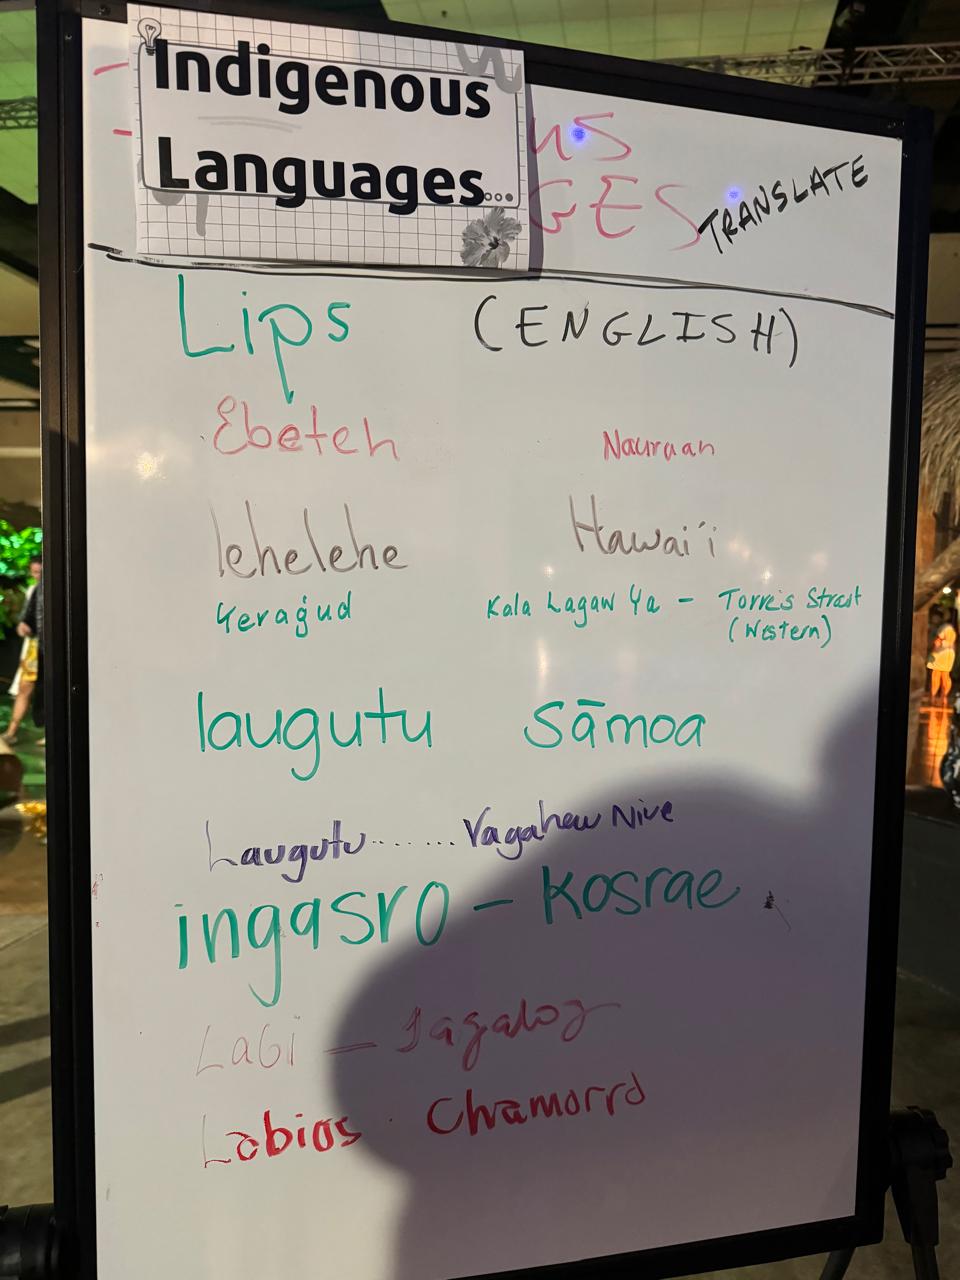 Indigenous
Languages...
us
GES
TRANSLATE
Lips (ENGLISH)
Ebeteh Nauruan
lehelehe Hawai'i
Yeraġud Kala Lagaw Ya - Torres Strait
(Western)
laugutu Sāmoa
Laugutu....... Vagahau Niue
ingasro - Kosrae
Labi - Tagalog
Labios Chamorro